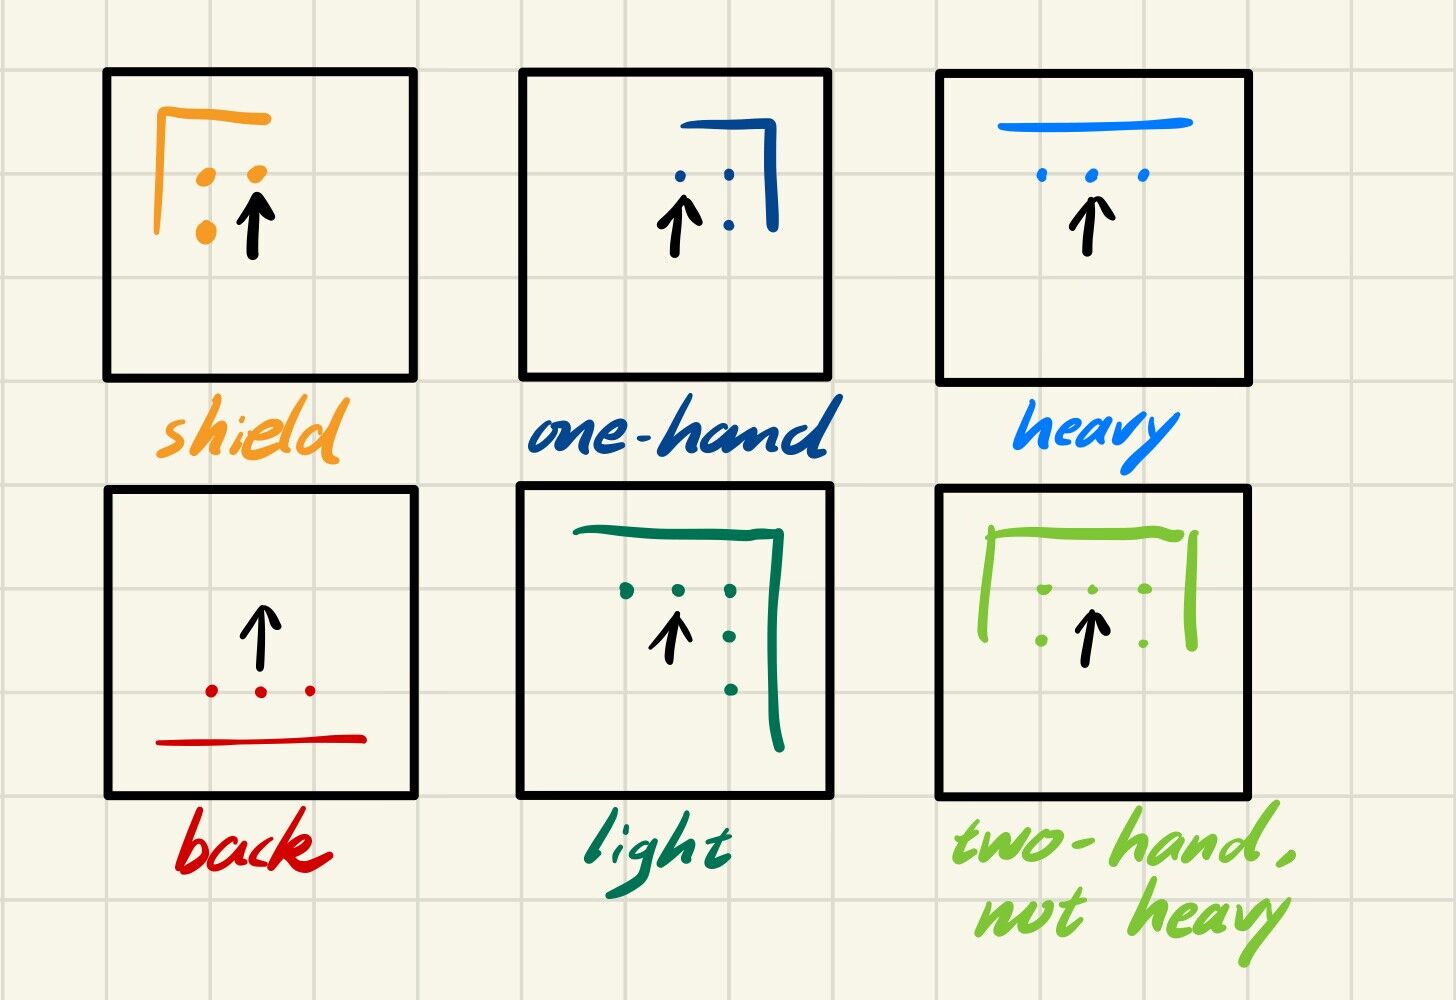 shield
one-hand
heavy
back
light
two-hand,
not heavy